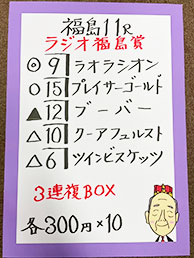 福島11R
ラジオ福島賞
◎9 ラオラシオン
○15 プレイサーゴールド
▲12 ブーバー
△10 クーアフュルスト
△6 ツインビスケッツ
3連複BOX
各300円×10